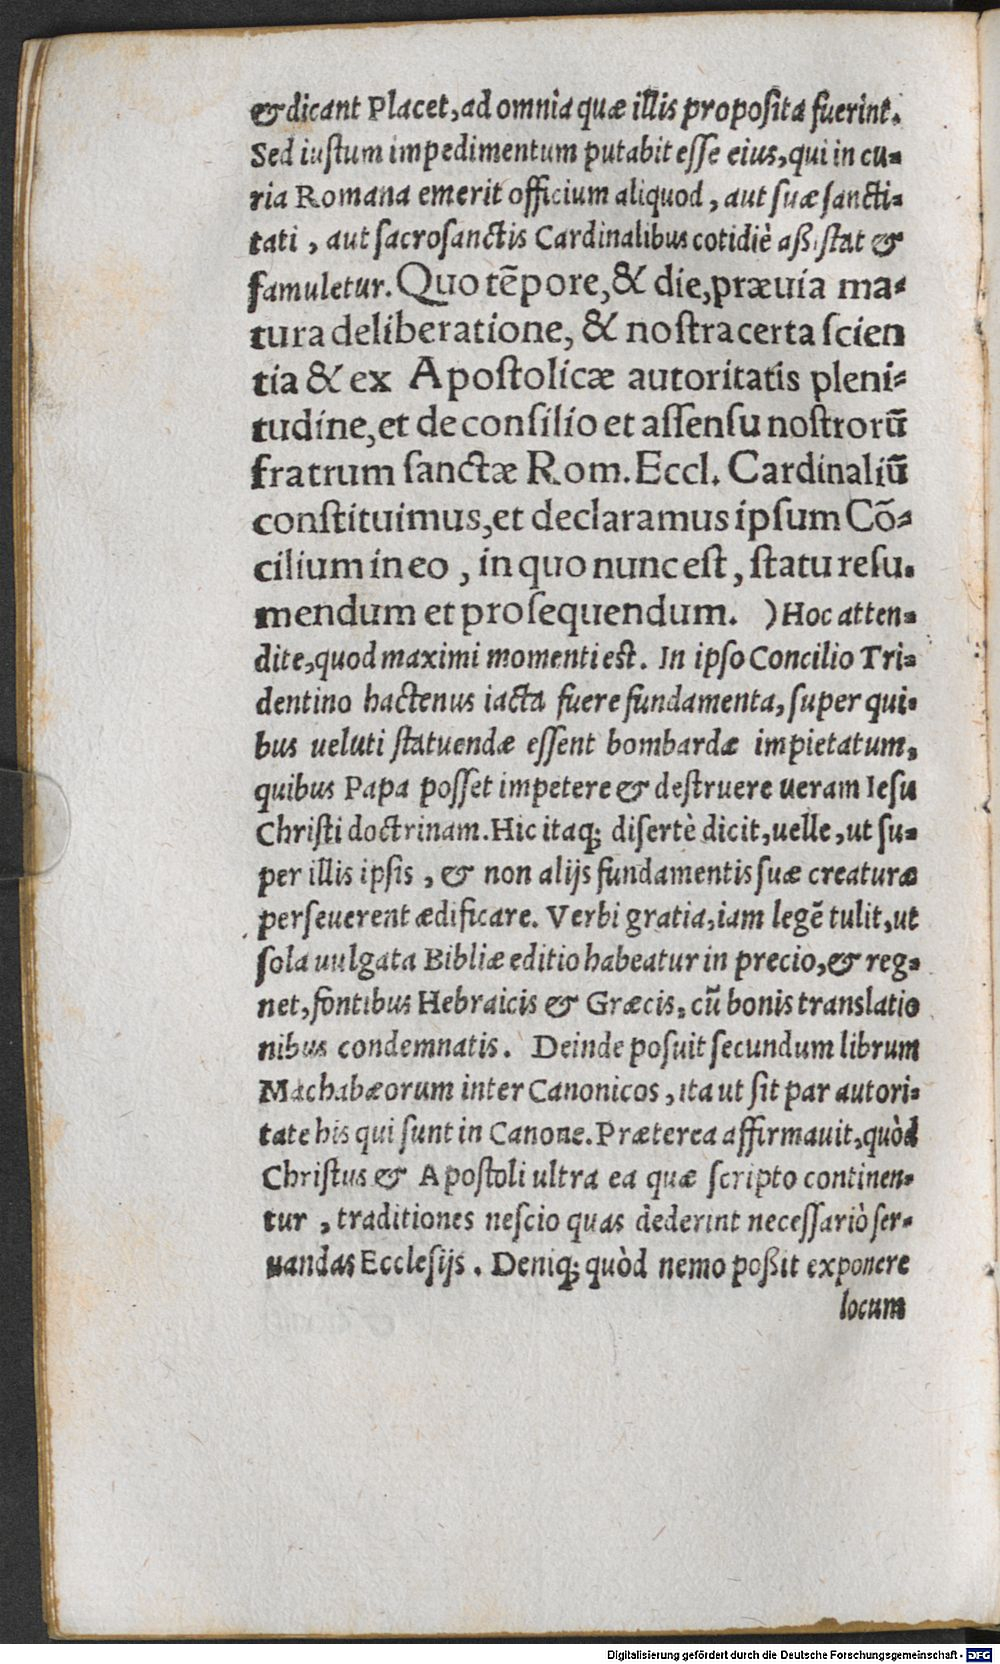 & dicant Placet, ad omnia quæ illis proposita fuerint.
Sed iustum impedimentum putabit esse eius, qui in cu-
ria Romana emerit officium aliquod, aut suæ sancti-
tati, aut sacrosanctis Cardinalibus cotidiè aßistat &
famuletur. Quo tẽpore, & die, præuia ma-
tura deliberatione, & nostra certa scien
tia & ex Apostolicæ autoritatis pleni-
tudine, et de consilio et assensu nostrorũ
fratrum sanctæ Rom. Eccl. Cardinaliũ
constituimus, et declaramus ipsum Cõ-
cilium in eo, in quo nunc est, statu resu-
mendum et prosequendum. ) Hoc atten-
dite, quod maximi momenti est. In ipso Concilio Tri-
dentino hactenus iacta fuere fundamenta, super qui-
bus ueluti statuendæ essent bombardæ impietatum,
quibus Papa posset impetere & destruere ueram Iesu
Christi doctrinam. Hic itaq; disertè dicit, uelle, ut su-
per illis ipsis, & non alijs fundamentis suæ creaturæ
perseuerent ædificare. Verbi gratia, iam legẽ tulit, ut
sola uulgata Bibliæ editio habeatur in precio, & reg-
net, fontibus Hebraicis & Græcis, cũ bonis translatio
nibus condemnatis. Deinde posuit secundum librum
Machabæorum inter Canonicos, ita ut sit par autori-
tate his qui sunt in Canone. Præterea affirmauit, quòd
Christus & Apostoli ultra ea quæ scripto continen-
tur, traditiones nescio quas dederint necessariò ser-
uandas Ecclesijs. Deniq; quòd nemo poßit exponere
locum
Digitalisierung gefördert durch die Deutsche Forschungsgemeinschaft - DFG